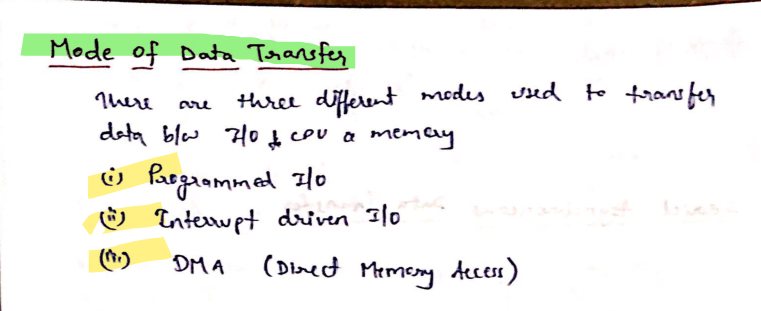 Mode of Data Transfer
There are three different modes used to transfer
data b/w I/O & CPU & memory
(i) Programmed I/O
(ii) Interrupt driven I/O
(iii) DMA (Direct Memory Access)